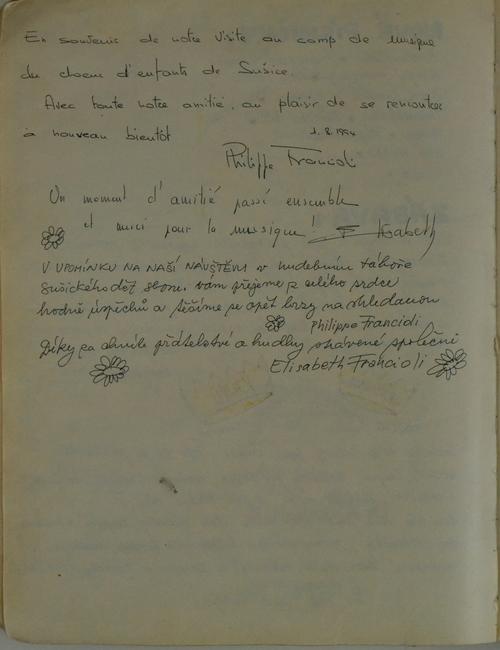 En souvenir de notre visite au camp de musique
du choeur d'enfants de Sušice.
Avec toute notre amitié, au plaisir de se rencontrer
à nouveau bientôt
1. 8. 1994
Philippe Francioli
Un moment d'amitié passé ensemble
et merci pour la mussique! Elisabeth
V UPOMÍNKU NA NAŠÍ NÁVŠTĚVU v hudebním táboře
sušického dět. sboru. vám přejeme z celého srdce
hodně úspěchů a těšíme se opět brzy na shledanou
Philippe Francioli
Díky za chvíle přátelství a hudby strávené společně
Elisabeth Francioli